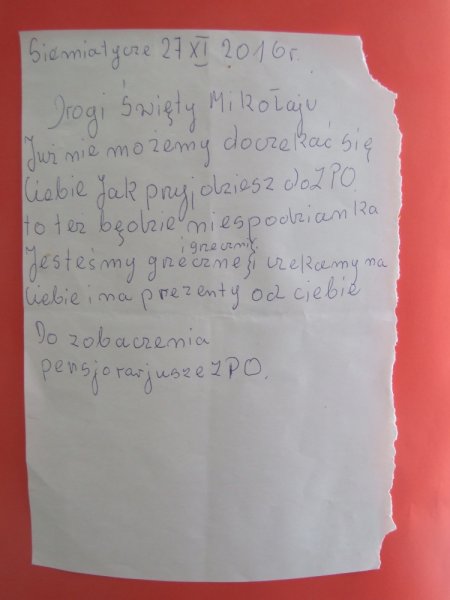 Siemiatycze 27 XI 2016r.
Drogi Święty Mikołaju
Już nie możemy doczekać się
Ciebie Jak pryjdziesz do ZPO
to też będzie niespodzianka
i grzeczni.
Jesteśmy grzeczne i czekamy na
Ciebie i na prezenty od ciebie
Do zobaczenia
pensjonarjusze ZPO.